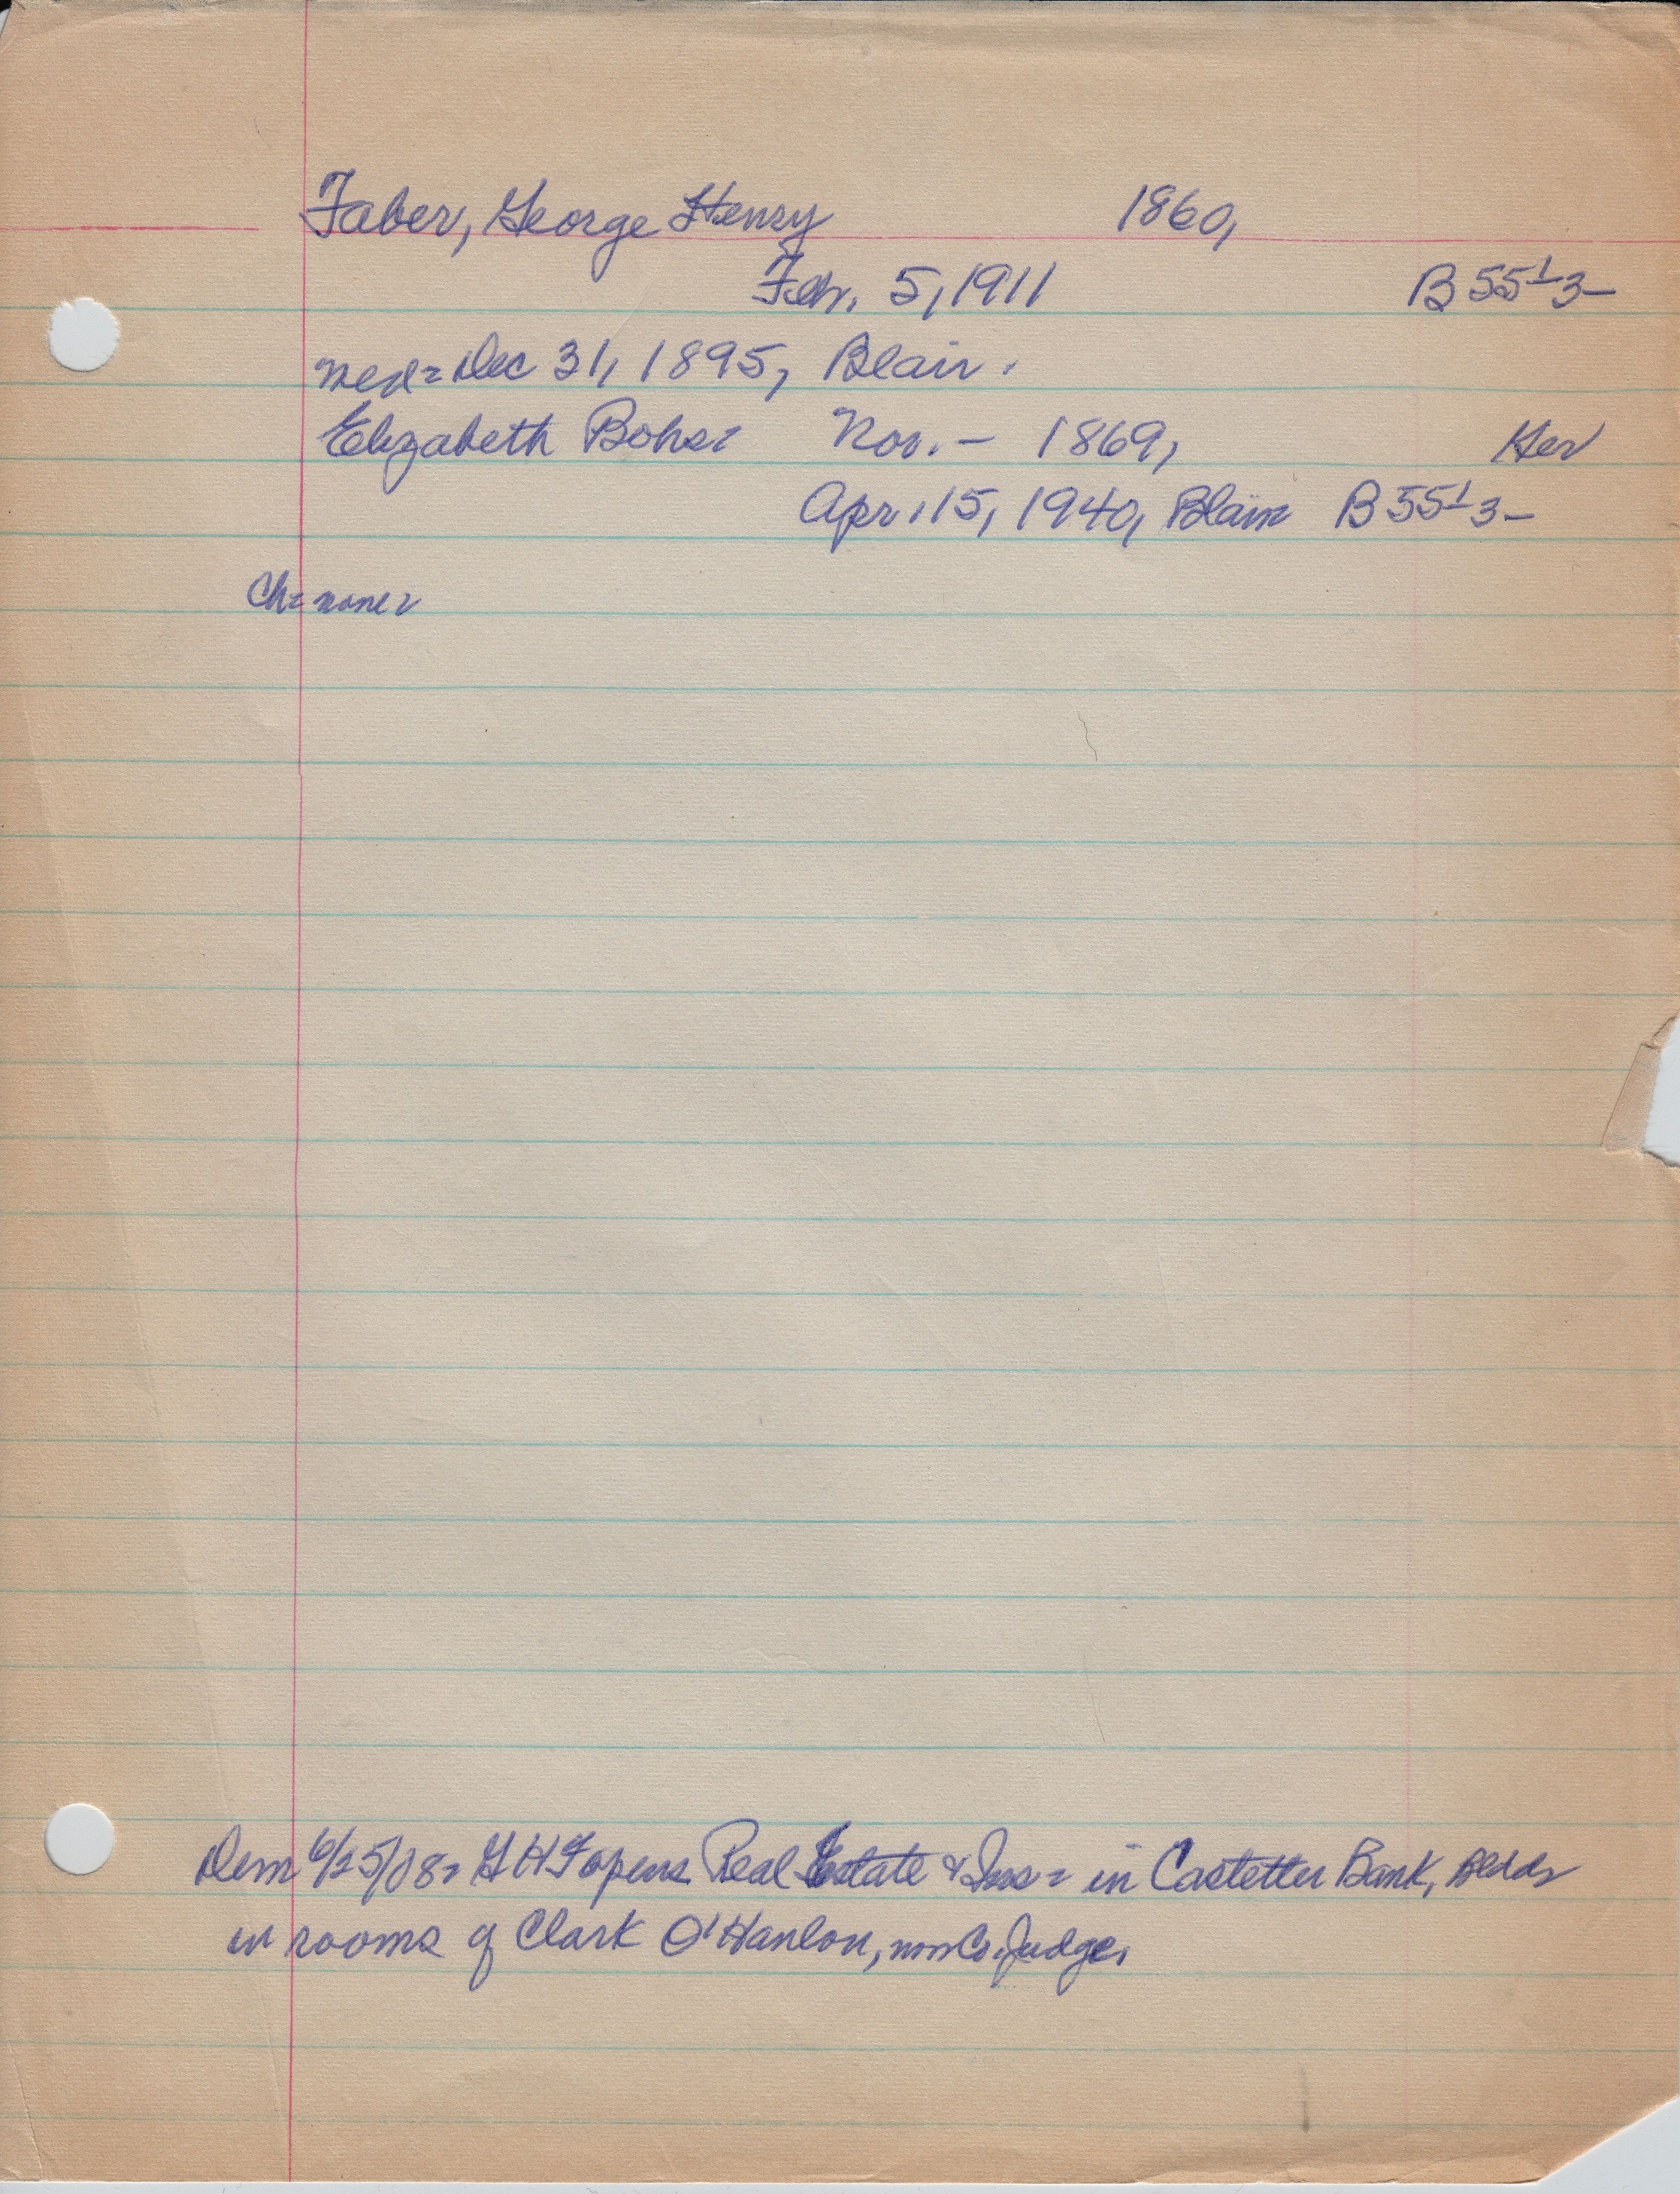 Faber, George Henry 1860,
Feb. 5, 1911 B 55 1/3-
Med= Dec 31, 1895, Blair.
Elizabeth Bohs= Nov. - 1869, Her
Apr. 15, 1940, Blair B 55 1/3-
Ch= none=
Dem 6/25/08= G H F opens Real Estate & Ins= in Castetter Bank, Bldg
in rooms of Clark O'Hanlon, now Co. Judge.